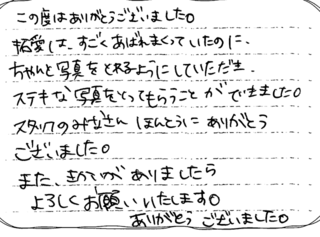 この度はありがとうございました。
拓愛は、すごくあばれまくっていたのに、
ちゃんと写真をとれるようにしていただき、
ステキな写真をとってもらうことができました。
スタッフのみなさん ほんとうに ありがとう
ございました。
また、きかいが ありましたら
よろしくお願いいたします。
ありがとう ございました。